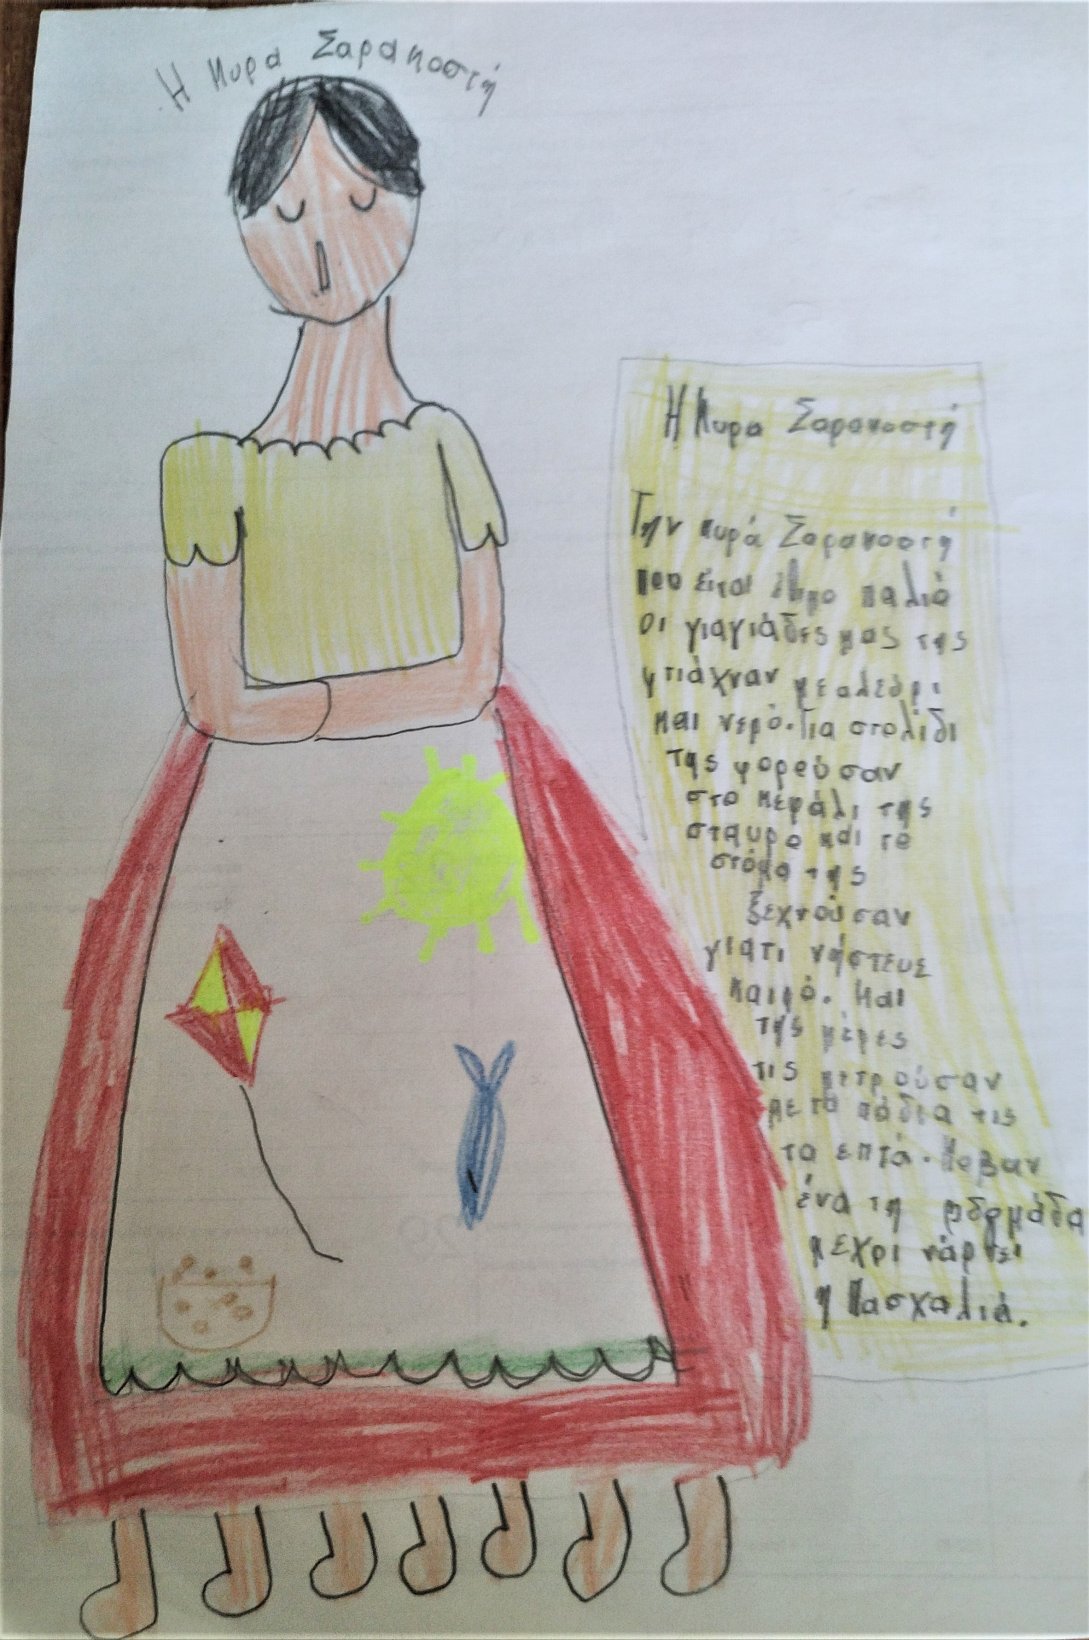 Η Κυρά Σαρακοστή
Η Κυρα Σαρακοστή
Την κυρά Σαρακοστή
που είναι έθιμο παλιό
οι γιαγιάδες μας της
φτιάχναν με αλεύρι
και νερό. Για στολίδι
της φορούσαν
στο κεφάλι της
σταυρο και το
στόμα της
ξεχνούσαν
γιατι νήστευε
καιρό. Και
της μέρες
τις μετρούσαν
με τα πόδια τις
τα επτά. Κοβαν
ένα τη
μεχρι νάρθει
η Πασχαλιά.